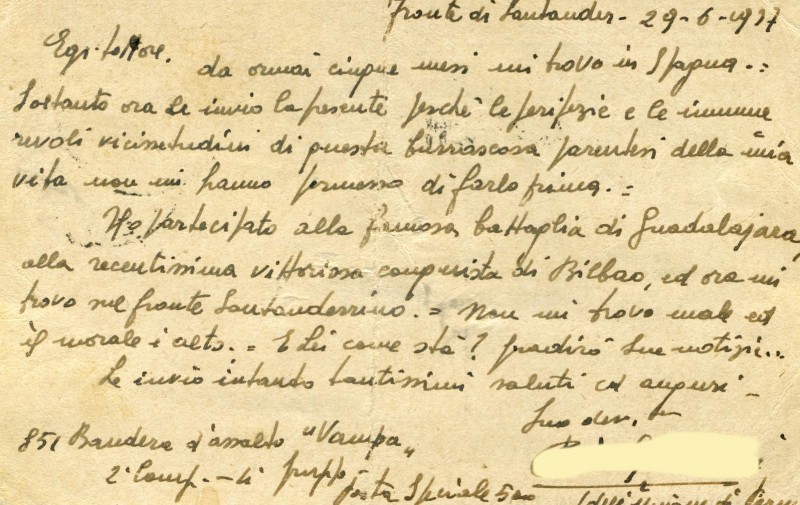 Fronte di Santander - 29-6-1937
Egr. dottore.
da ormai cinque mesi mi trovo in Spagna.=
Soltanto ora Le invio la presente perchè le peripezie e le innume
revoli vicissetudini di questa burrascosa parentesi della mia
vita non mi hanno permesso di farlo prima.=
Ho partecipato alla famosa battaglia di Guadalajara,
alla recentissima vittoriosa conquista di Bilbao, ed ora mi
trovo sul fronte Santanderrino.= Non mi trovo male ed
il morale è alto.= E Lei come stà? Gradirò Sue notizie..
Le invio intanto tantissimi saluti ed auguri -
Suo dev.
851 Bandera d'assalto "Vampa"
2ª Comp. - gruppo
Posta Speciale 500